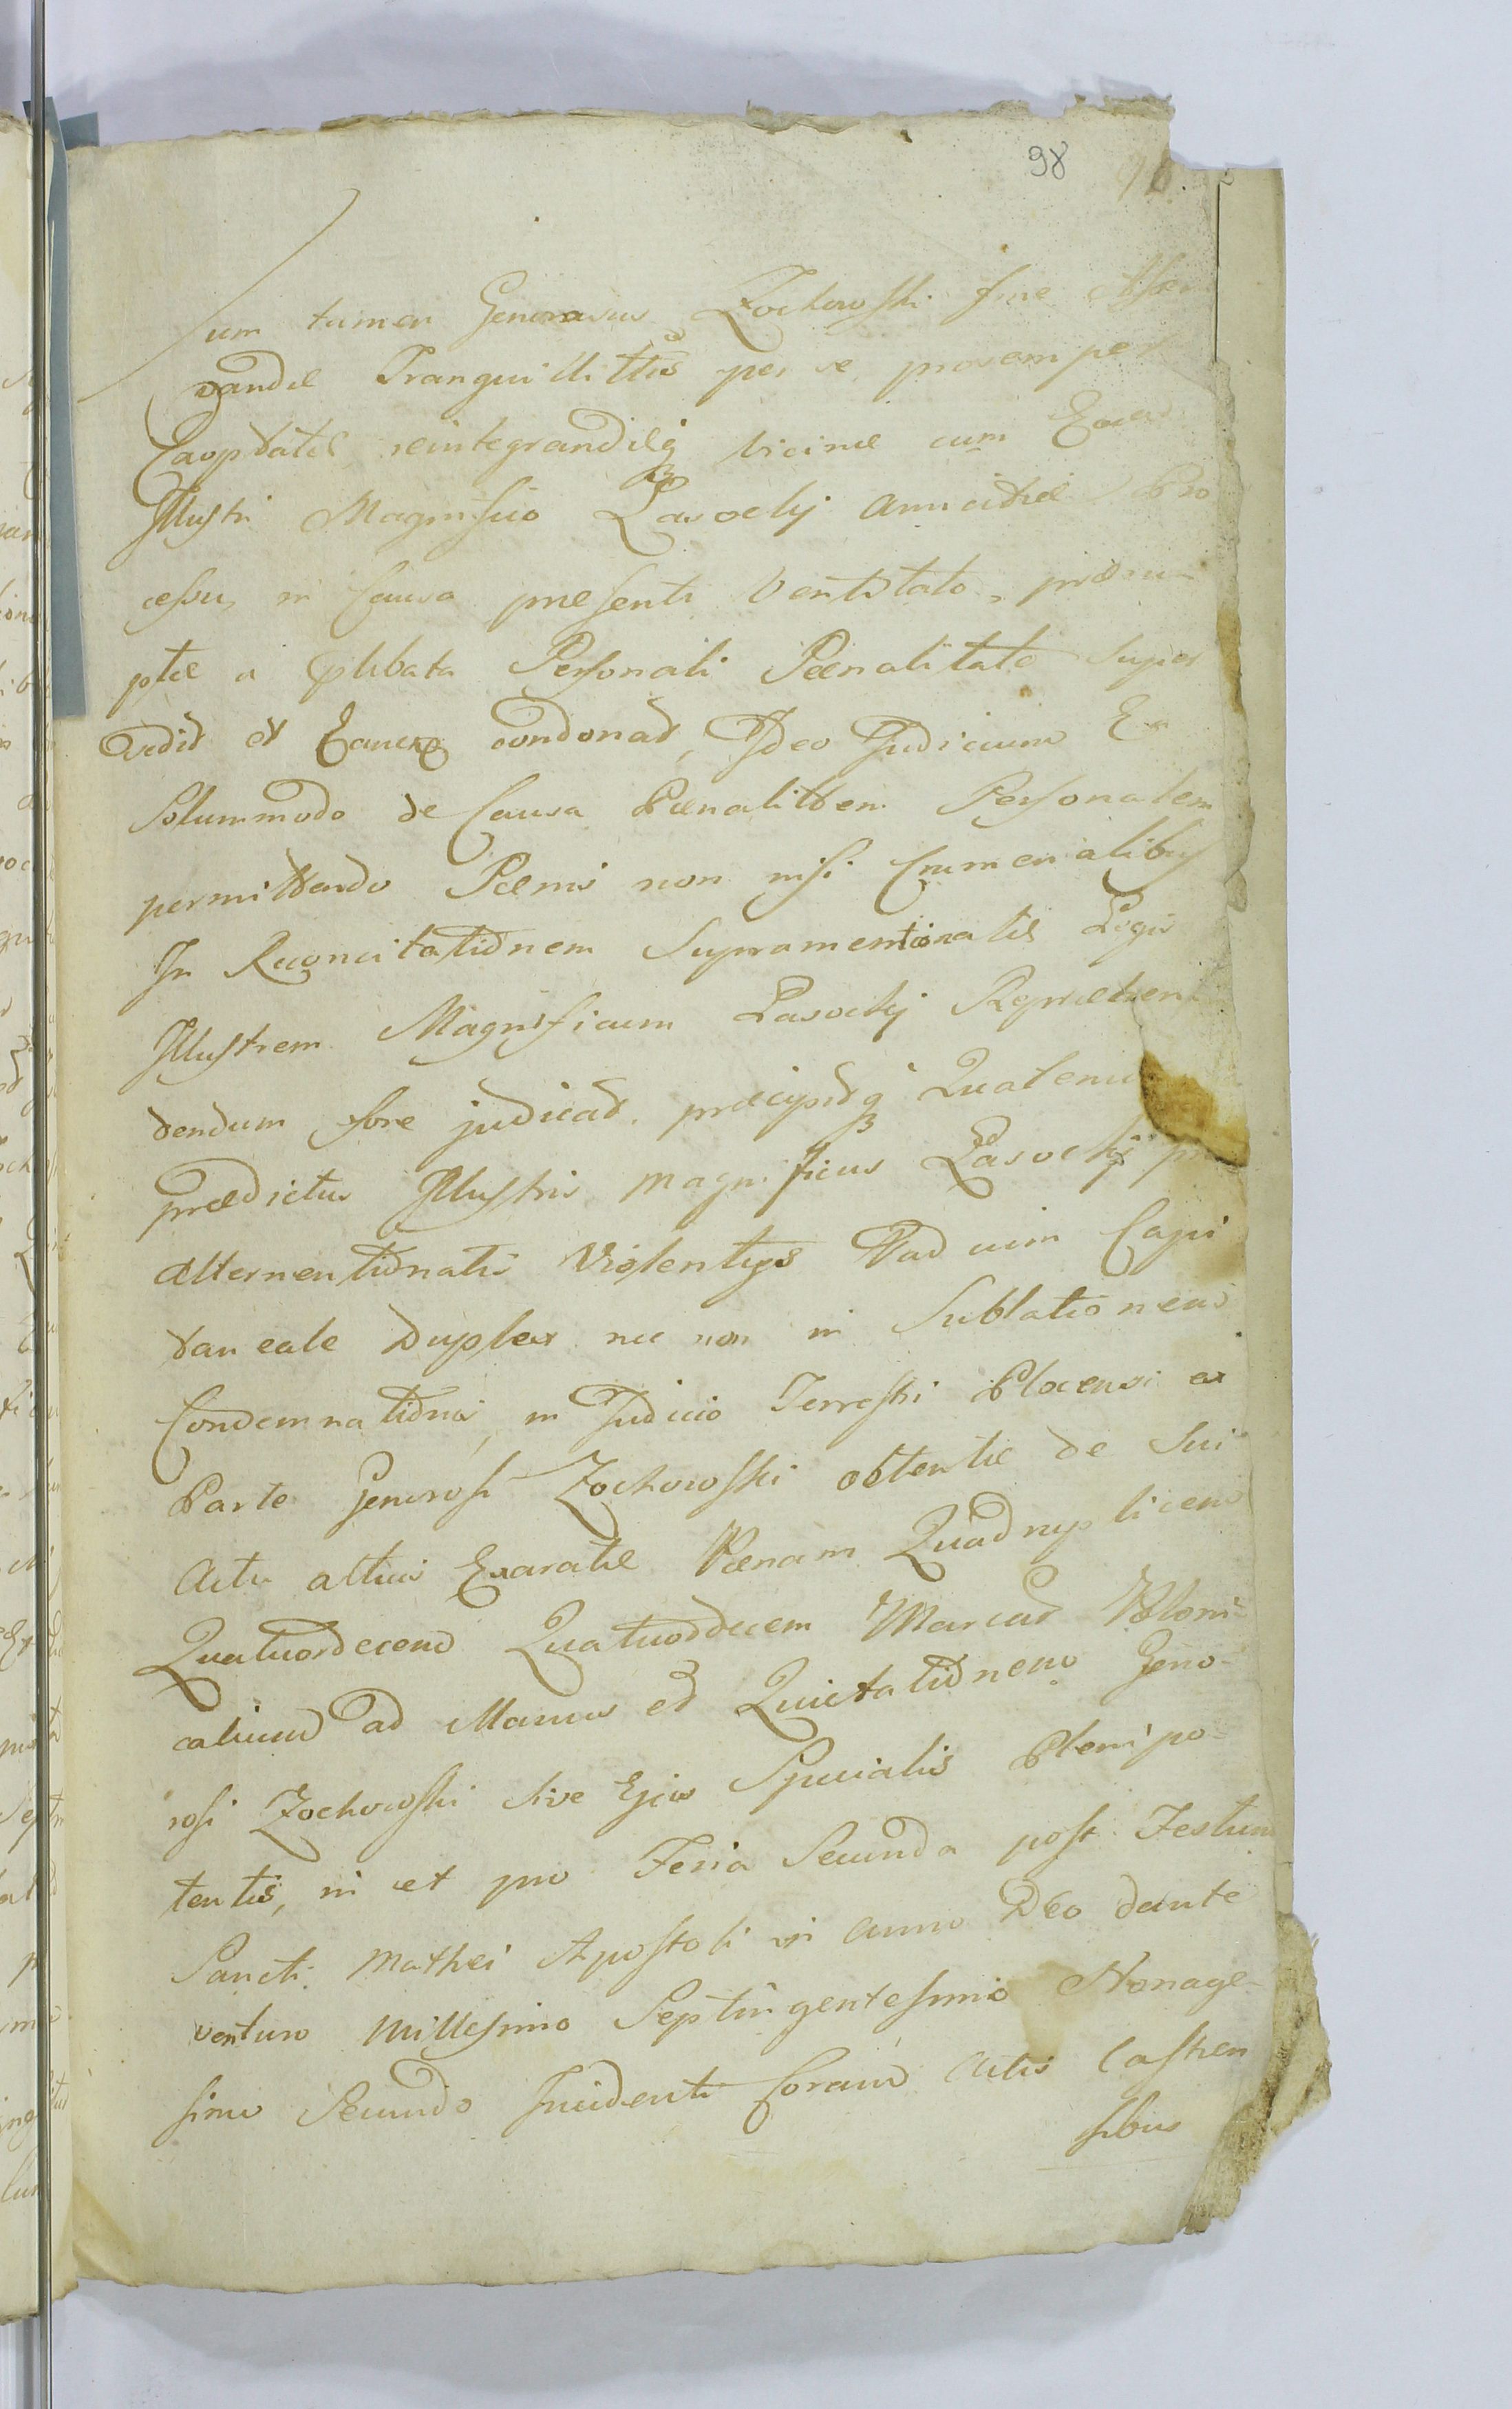 98
Cum tamen Generosus Zochowski fine
vandæ Tranquillitatis per se prosemper
Caoptatæ reintegrandæq vicinæ cum
Illustri Magnifico Lasocky Amicitiæ Pro
cessu, in Causa præsenti Ventitato,
ptæ a Personali Pænalitate Super
sedit et condonat, Ideo Judicium Ea
Solummodo de Causa Pænalittem Personalem
permittendo Pænis non nisi Crumenalibus
In supramentionatis Legis
Illustrem Magnificum Lasocky Repræhen
dendum fore judicat, præcipitq Quatenus
prædictus Illustris Magnificus Lasocky
altermentionatis Violentys Vadium Capi
taneale Duplex nec non in Sublationem
Condemnationis, in Judicio Terrestri Plocensi ex
Parte Generosi Zochowski obtentæ de Sui
Actu altius Exaratæ Pænam Quadruplicem
Quatuordecem Quatuordecem Marcas Poloni-
calium ad Manus et Quietationem Gene-
rosi Zochowski sive Ejus Specialis Plenipo-
tentis, in et pro Feria Secunda post Festum
Sancti Mathei Apostoli in Anno Deo dante
venturo Millesimo Septingentesimo Nonage-
simo Secundo Incidenti Coram Actis Castren
sibus